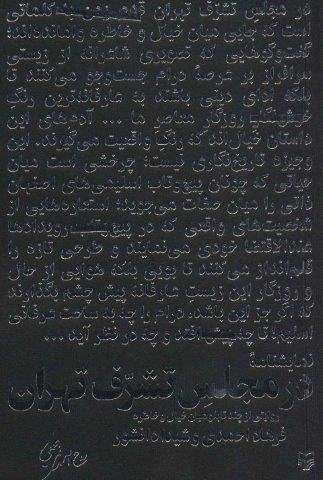 در مجلس تشرف تهران قدم می‌زند کلماتی
است که جایی میان خیال و خاطره وامانده‌اند؛
گفت‌وگوهایی که تصویری شاعرانه از زیستی
سرافراز بر عرصهٔ درام جست‌وجو می‌کنند تا
بلکه ادای دینی باشند به عارفانه‌ترین رنگ
روزگار معاصر ما ... آدم‌های این
داستان خیال‌اند که رنگ واقعیت می‌گیرند. این
وجیزه تاریخ‌نگاری نیست؛ چرخشی است میان
حیاتی که چونان پیچ‌وتاب اسلیمی‌های اصفهان
ذاتی را میان صفات می‌جوید؛ استعاره‌هایی از
شخصیت‌های واقعی که در رویدادها
عندالاقتضا خودی می‌نمایند و طرحی تازه را
قلم‌انداز می‌کنند تا بویی بلکه هوایی از حال
و روزگار این زیست عارفانه پیش چشم بگذارند
که اگر جز این باشد، درام را چه به ساحت عرفانی
اسلیم؛ تا چه و چه در نظر آید ...
نمایشنامهٔ
در مجلس تشرف تهران
روایتی از چند تابلو میان خیال و خاطره
فرهاد احمدی و شیدا دانشور